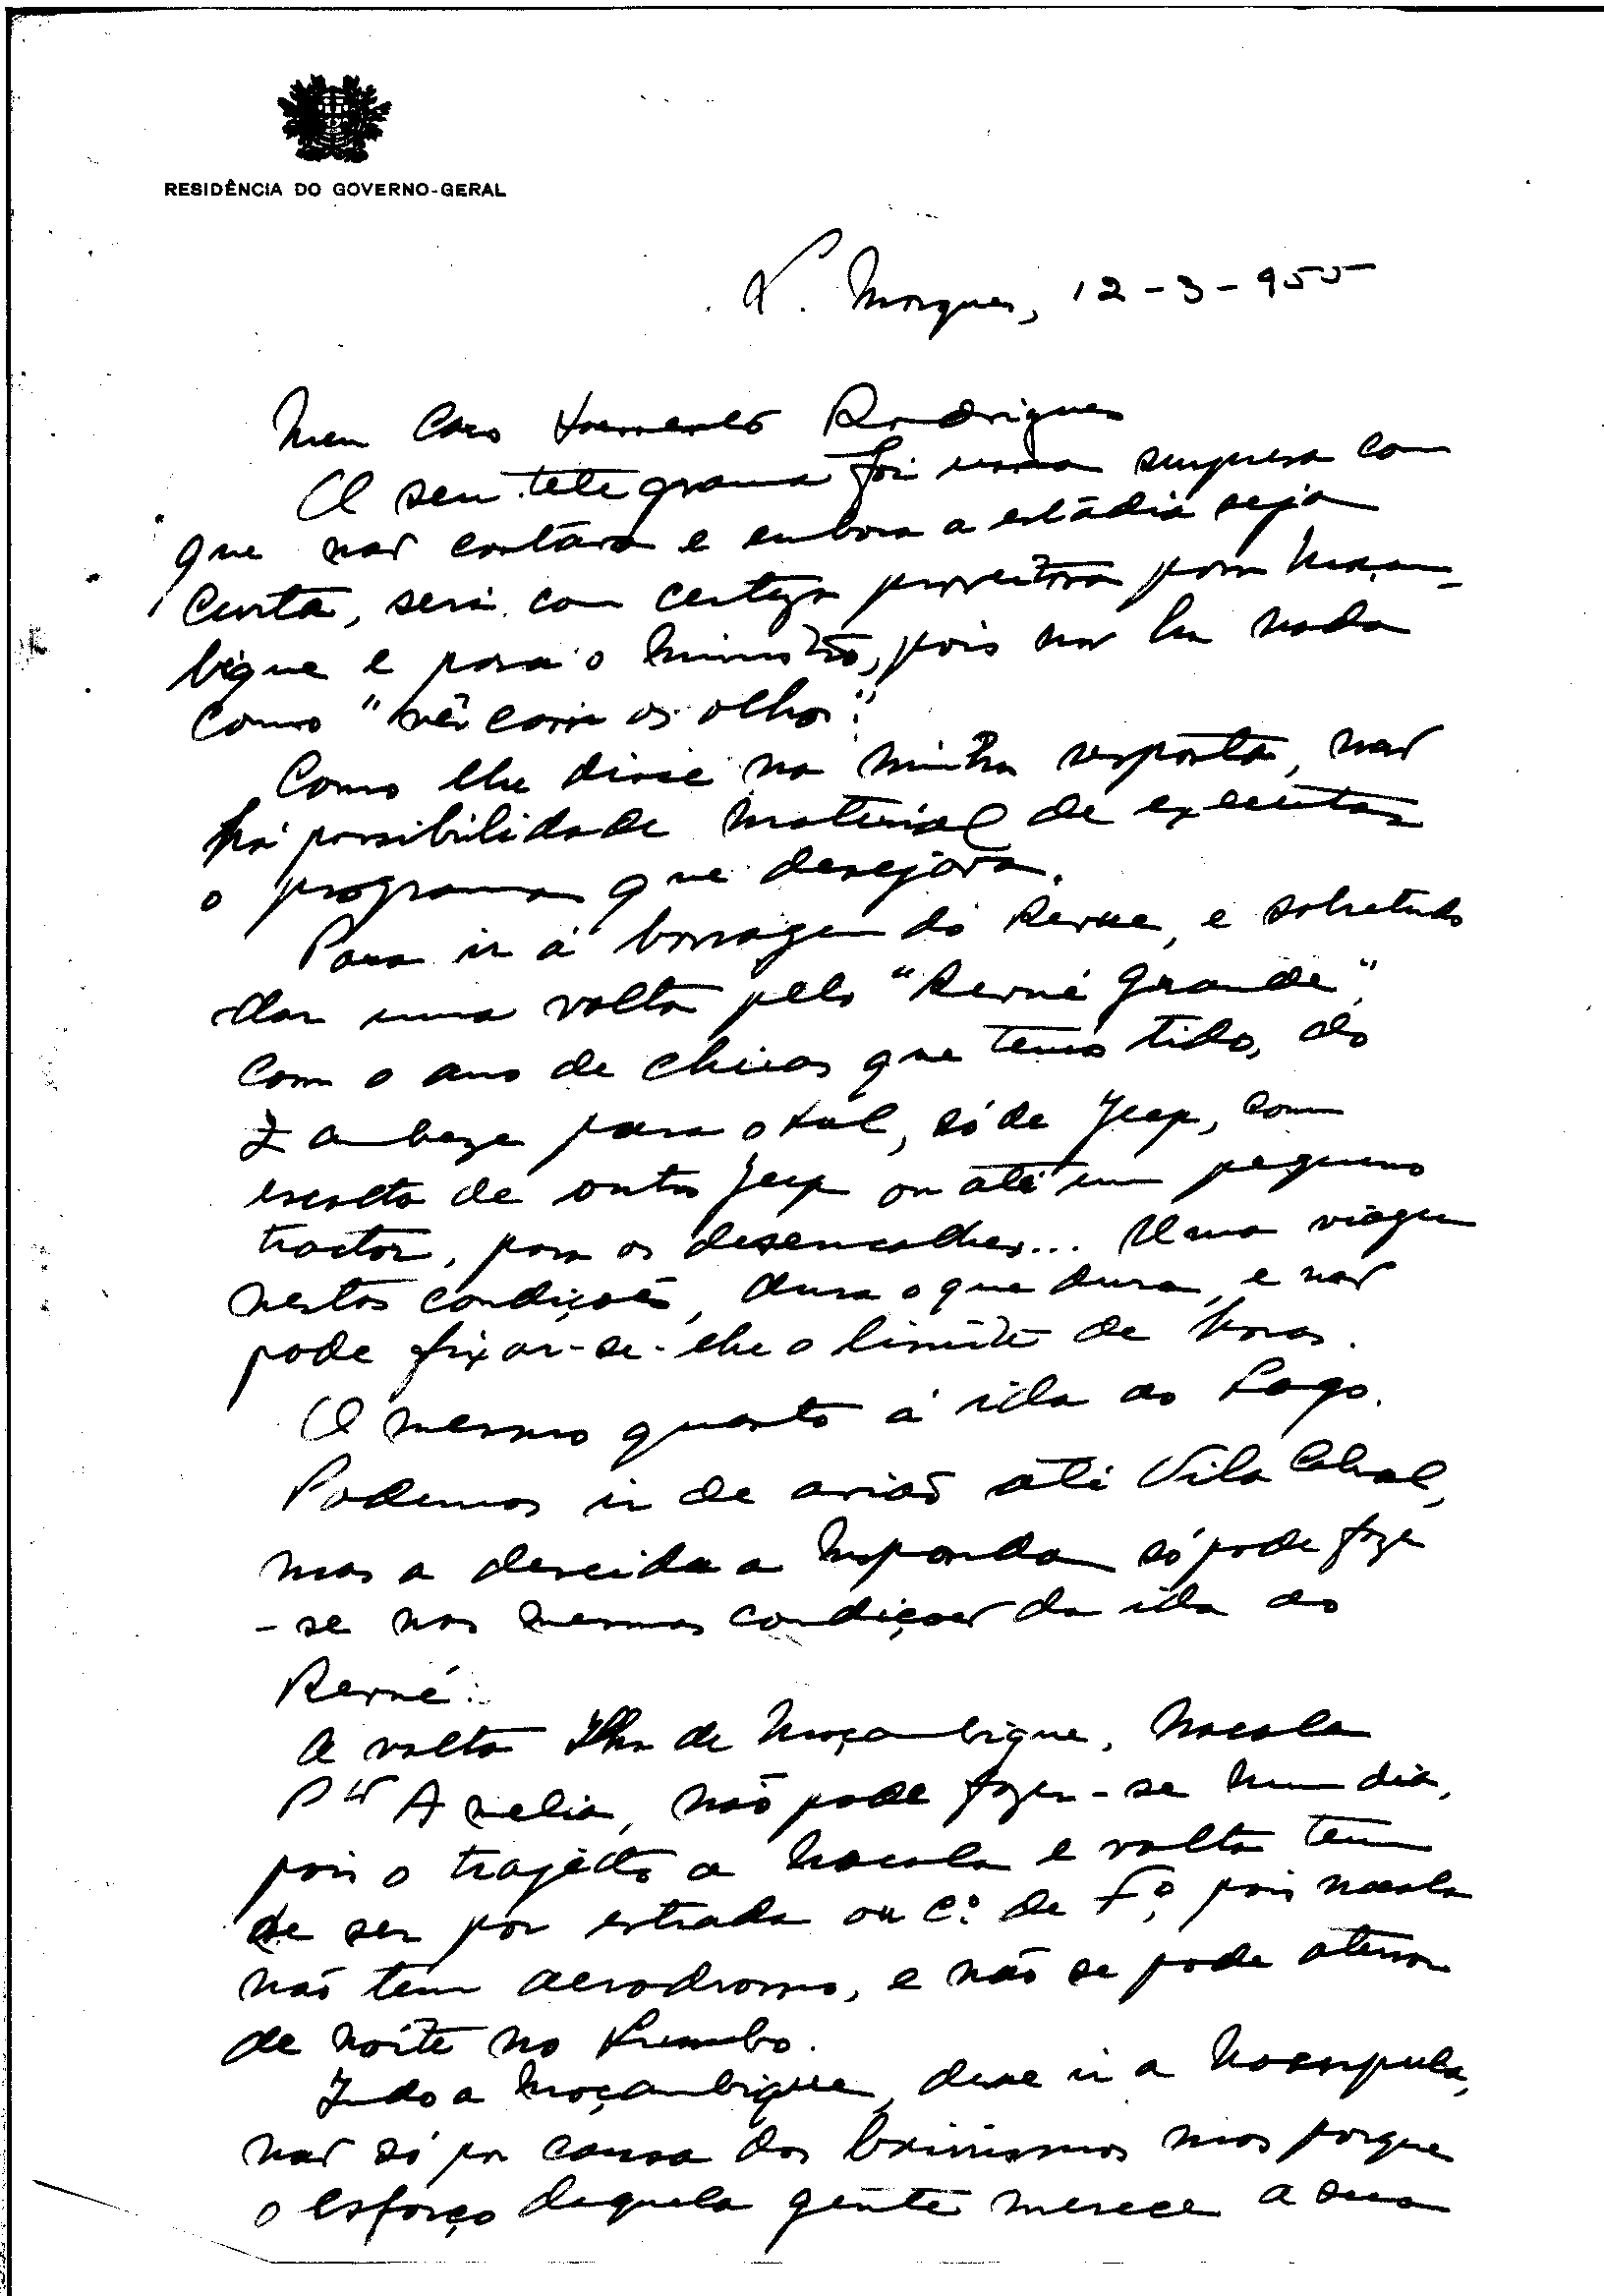 RESIDÊNCIA DO GOVERNO-GERAL
L. Marques, 12-3-955
Meu Caro Sarmento Rodrigues
O seu telegrama foi uma surpresa com
que não contava e embora a estádia seja
curta, será com certeza proveitosa para Moçam-
bique e para o Ministro, pois não ha nada
como "vêr com os olhos".
Como lhe disse na minha resposta, não
há possibilidade material de executar
o programa que desejava.
Para ir á barragem do Revue, e sobretudo
dar uma volta pelo "Revué Grande",
com o ano de chuvas que temos tido, do
Zambeze para o sul, só de Jeep, com
escolta de outro Jeep ou até um pequeno
tractor, para os desencalhes... Uma viagem
nestas condições, dura o que dura, e não
pode fixar-se-lhe o limite de horas.
O mesmo quanto á ida ao Lago.
Podemos ir de avião até Vila Cabral,
mas a descida a Meponda só pode fazer
-se nas mesmas condições da ida ao
Revué.
A volta Ilha de Moçambique, Nacala
Pto Amelia, não pode fazer-se num dia,
pois o trajecto a Nacala e volta tem
de ser por estrada ou C.º de F.º, pois Nacala
não tem aerodromo, e não se pode aterrar
de noite no Lumbo.
Indo a Moçambique, deve ir a Nampula,
não só por causa dos mas porque
o esforço daquela gente merece a sua